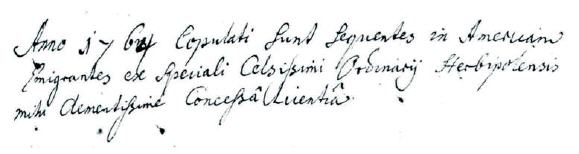 Anno 1764 Copulati Sunt Sequentes in Americam
Emigrantes ex Speciali Celsissimi Ordinarij Herbipolensis
mihi Clementissime Concessâ Licentiâ